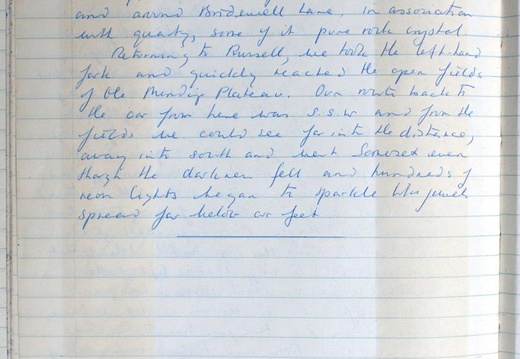 and around Bridewell Lane, in association
with quartz, some of it pure rock crystal.
Returning to Russell, we took the left hand
fork and quickly reached the open fields
of the Mendip Plateau. Our route back to
the car from here was S.S.W and from the
fields we could see far into the distance,
away into south and west Somerset even
though the darkness fell and hundreds of
neon lights began to sparkle like jewels
spread far below our feet